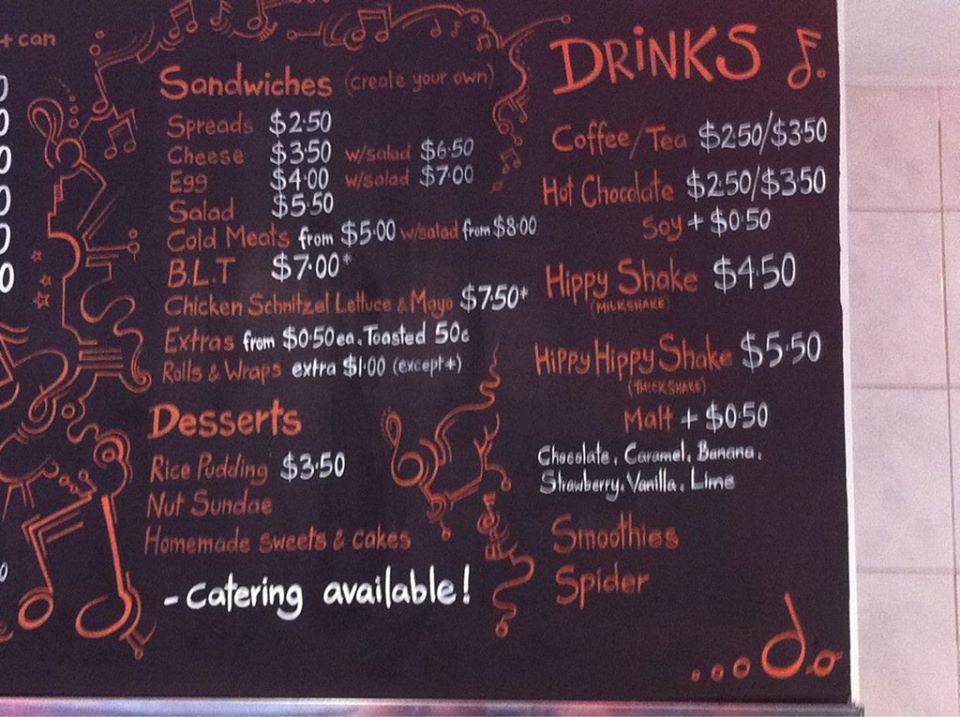 + can
Sandwiches (create your own)
Spreads $2.50
Cheese $3.50 w/salad $6.50
Egg $4.00 w/salad $7.00
Salad $5.50
Cold Meats from $5.00 w/salad from $8.00
B.L.T $7.00*
Chicken Schnitzel Lettuce & Mayo $7.50*
Extras from $0.50ea. Toasted 50c
Rolls & Wraps extra $1.00 (except*)
Desserts
Rice Pudding $3.50
Nut Sundae
Homemade sweets & cakes
- Catering available!
DRINKS
Coffee/Tea $2.50/$3.50
Hot Chocolate $2.50/$3.50
Soy + $0.50
Hippy Shake $4.50
(MILKSHAKE)
Hippy Hippy Shake $5.50
(THICKSHAKE)
Malt + $0.50
Chocolate, Caramel, Banana,
Strawberry, Vanilla, Lime
Smoothies
Spider